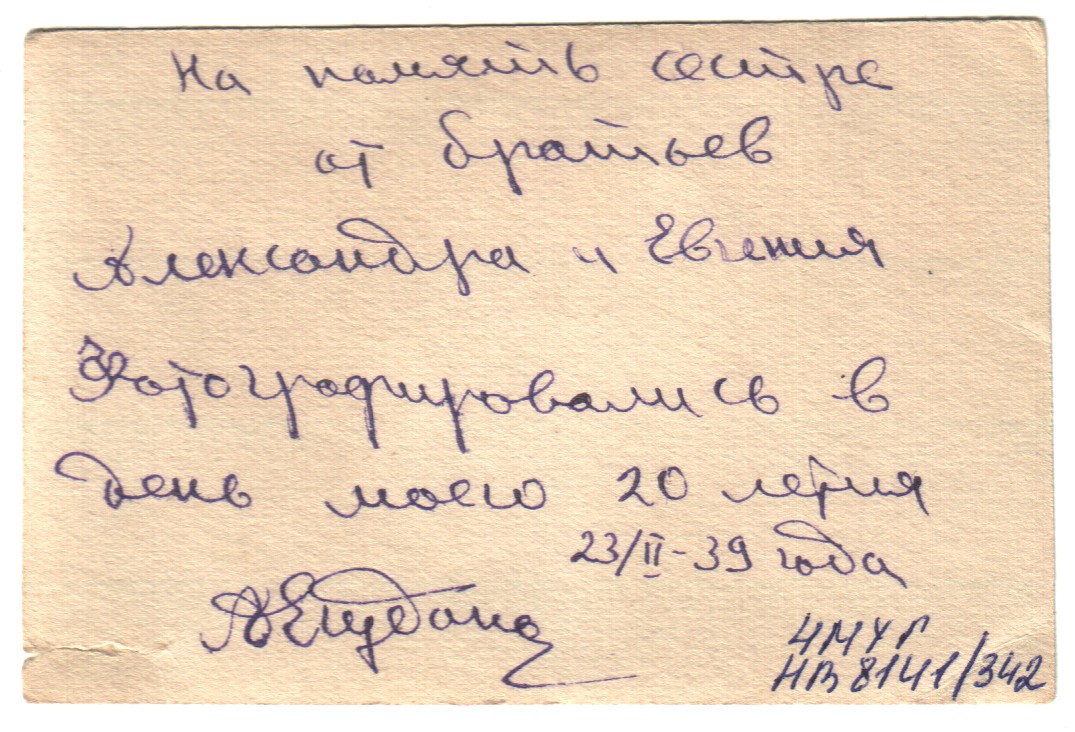 На память сестре
от братьев
Александра и Евгения
Фотографировались в
день моего 20 летия
23/II-39 года
ЧМЧГ
НВ 8141/342